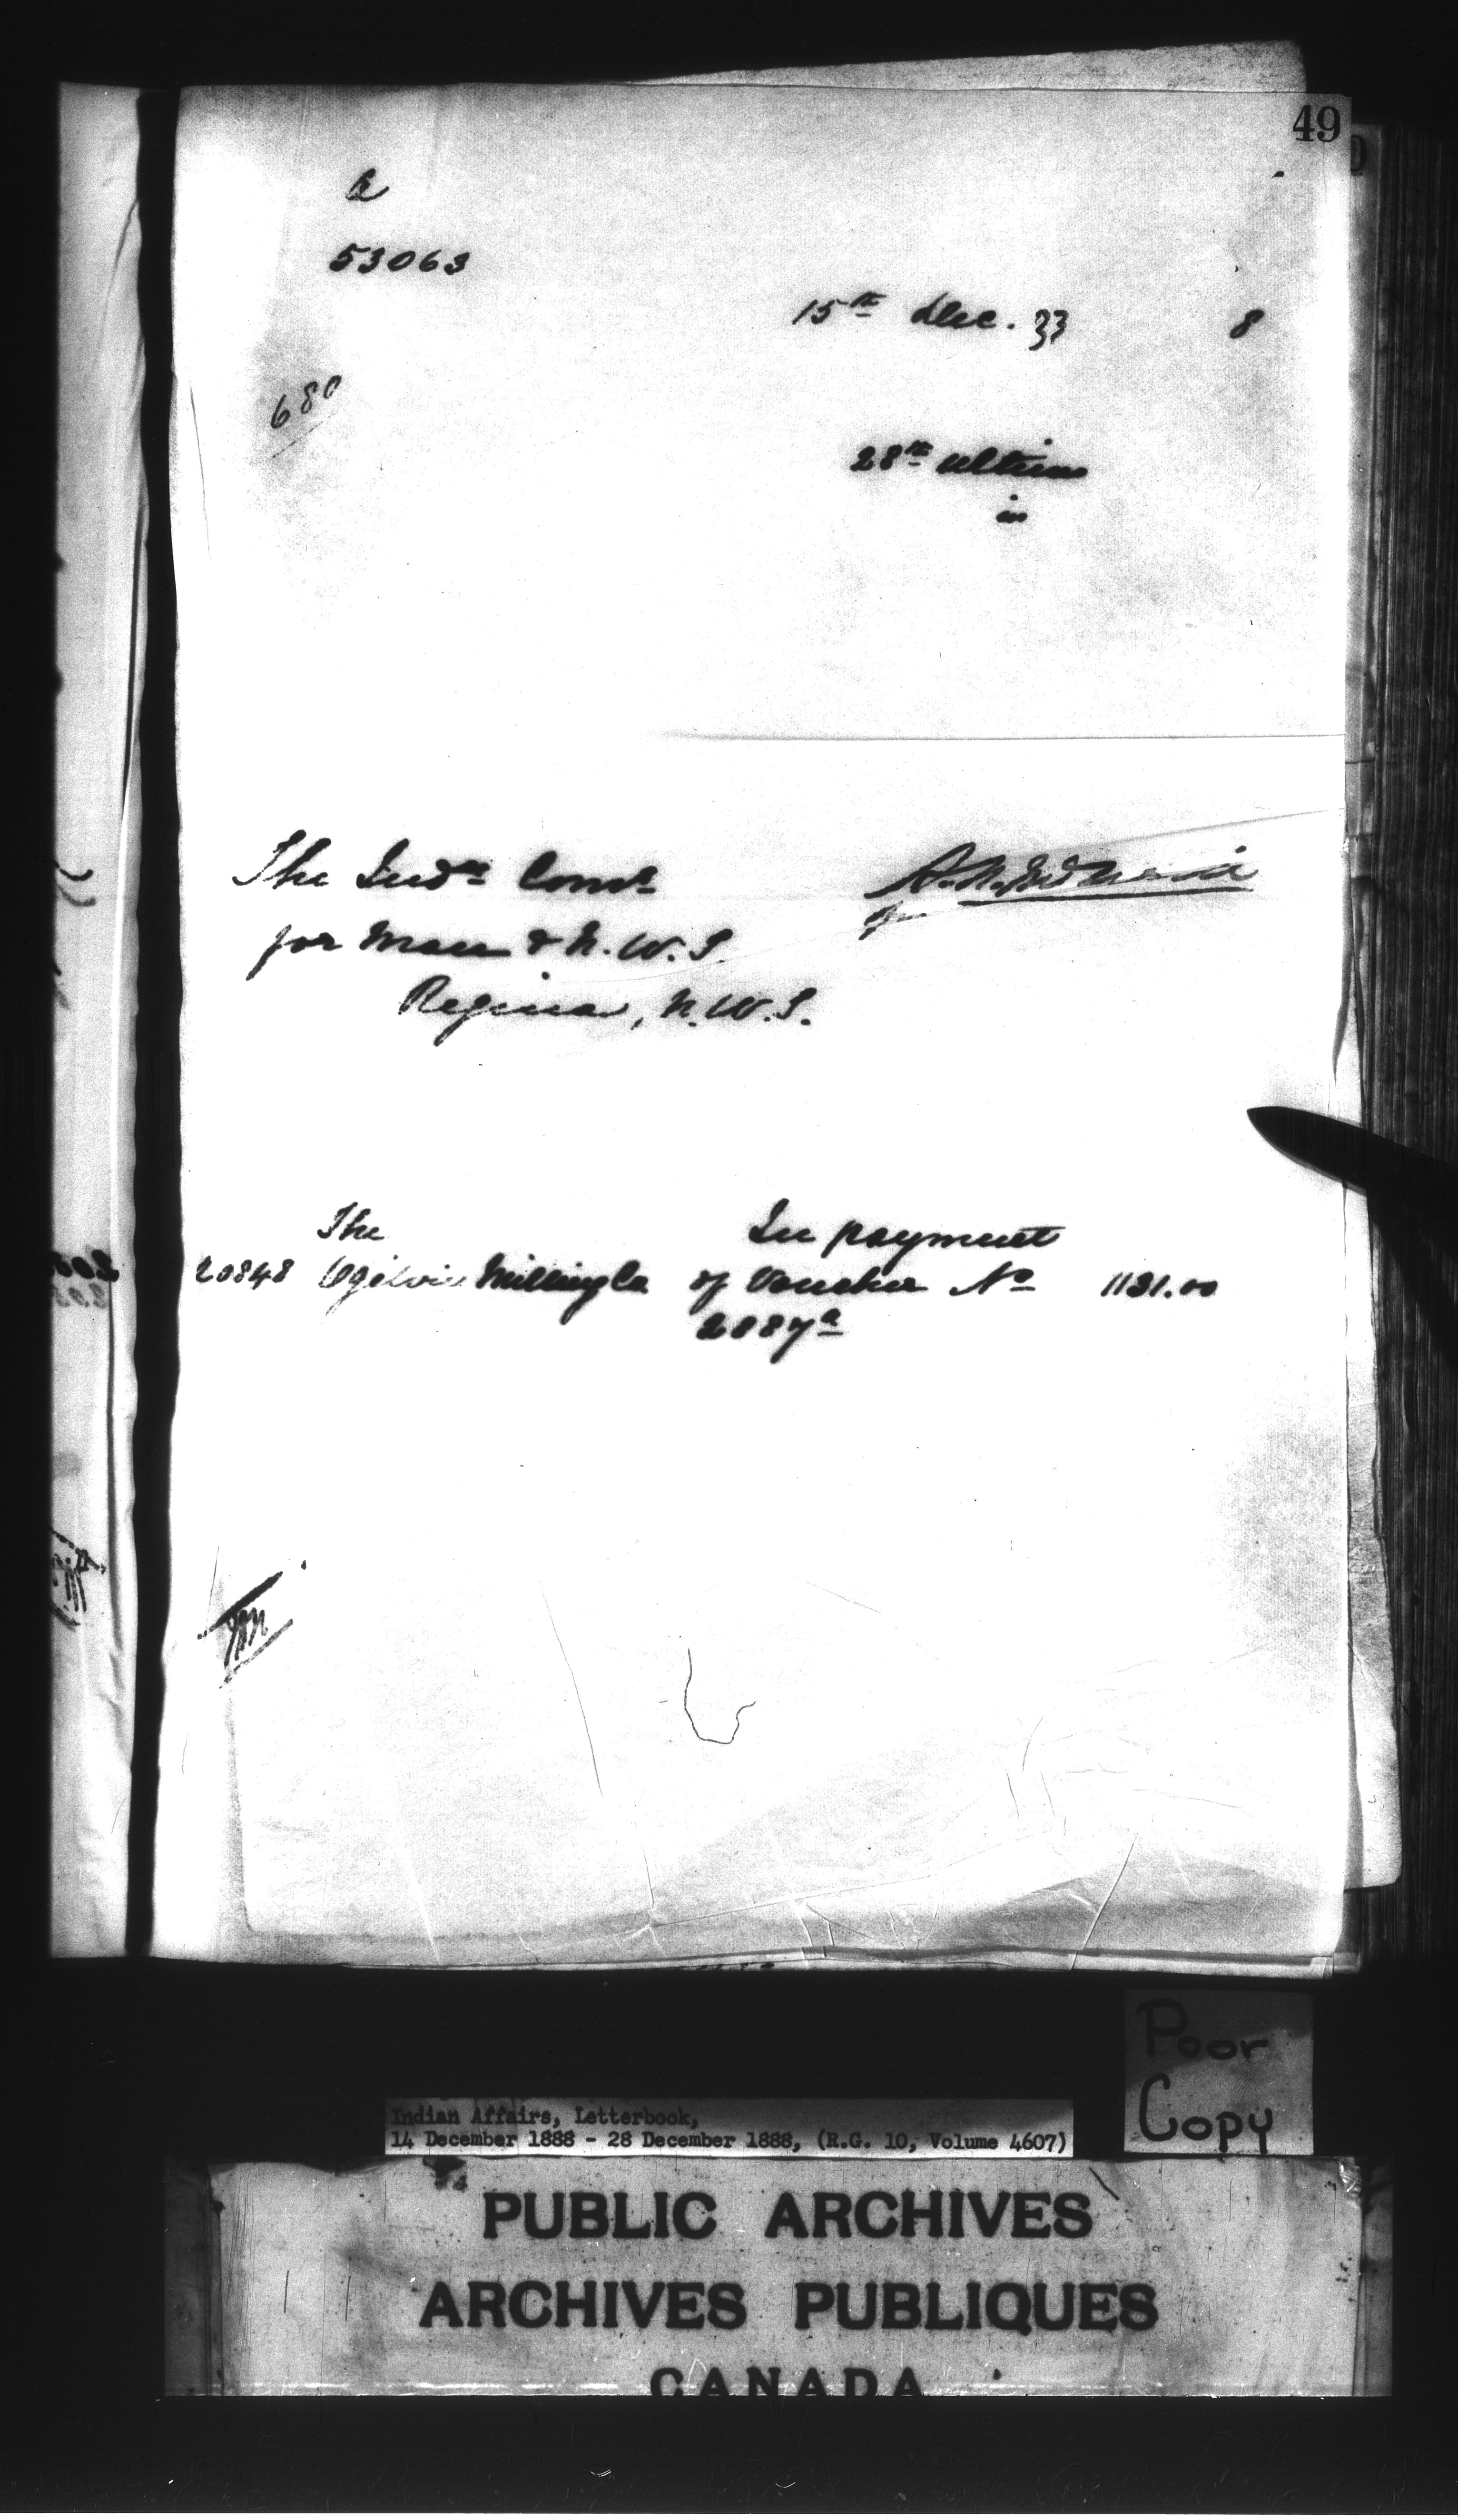 49
a
53063
15th Dec. 8
680
28th ultimo
in
The Indn Comr
for Man & N.W.T.
Regina, N.W.T.
The
In payment
20848 Ogilvie Milling Co of Voucher No 1131.00
2087a
Poor
Copy
Indian Affairs, Letterbook,
14 December 1888 - 28 December 1888, (R.G. 10, Volume 4607)
PUBLIC ARCHIVES
ARCHIVES PUBLIQUES
CANADA